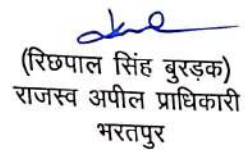 (रिछपाल सिंह बुरड़क)
राजस्व अपील प्राधिकारी
भरतपुर